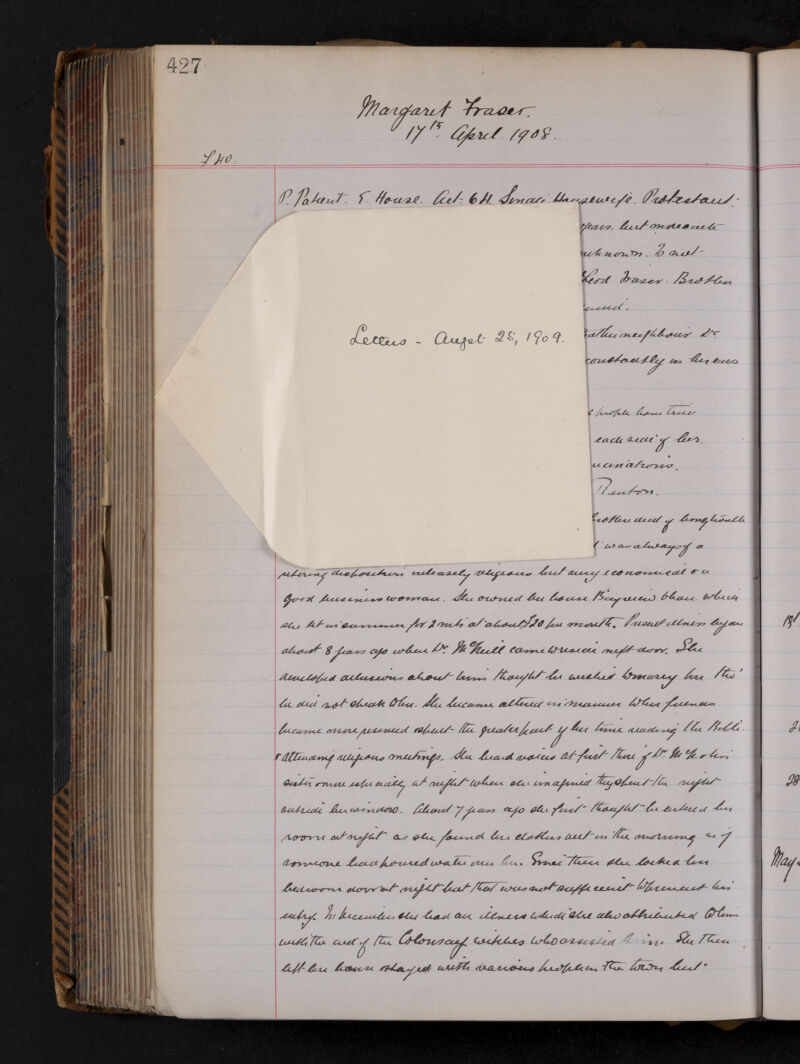 427
Margaret Fraser.
17th April 1908.
£40.
P. Patient. E. House. Aet. 64. Single Housewife. Protestant.
years. but
unknown.
Leod Fraser. Brother
neighbour Dr
constantly in her ears
Letters - Augst 25, 1909.
people have tried
each side of her.
Renton.
was always of a
retiring disposition intensely religious but very economical & a
good business woman. She owned the house Bayview Oban which
she let in summer for 2 mts at about £20 per month. Present illness began
about 8 years ago when Dr. McNeill came to reside next door. She
developed delusions about him thought he wished to marry her tho'
he did not speak to her. She became altered in manner to her friends
became more reserved & spent the greater part of her time reading the Bible
& attending religious meetings. She heard voices at first those of Dr. McN. & his
sister more especially at night when she imagined they spent the night
outside her window. About 7 years ago she first thought he entered her
room at night as she found her clothes wet in the morning as if
someone had poured water over her. Since then she locked her
bedroom door at night but that was not sufficient to prevent his
entry. In December she had an illness which she also attributed to him
with the aid of the Colonsay witches who assisted him. She then
left her house & stayed with various people in the town but
28
May